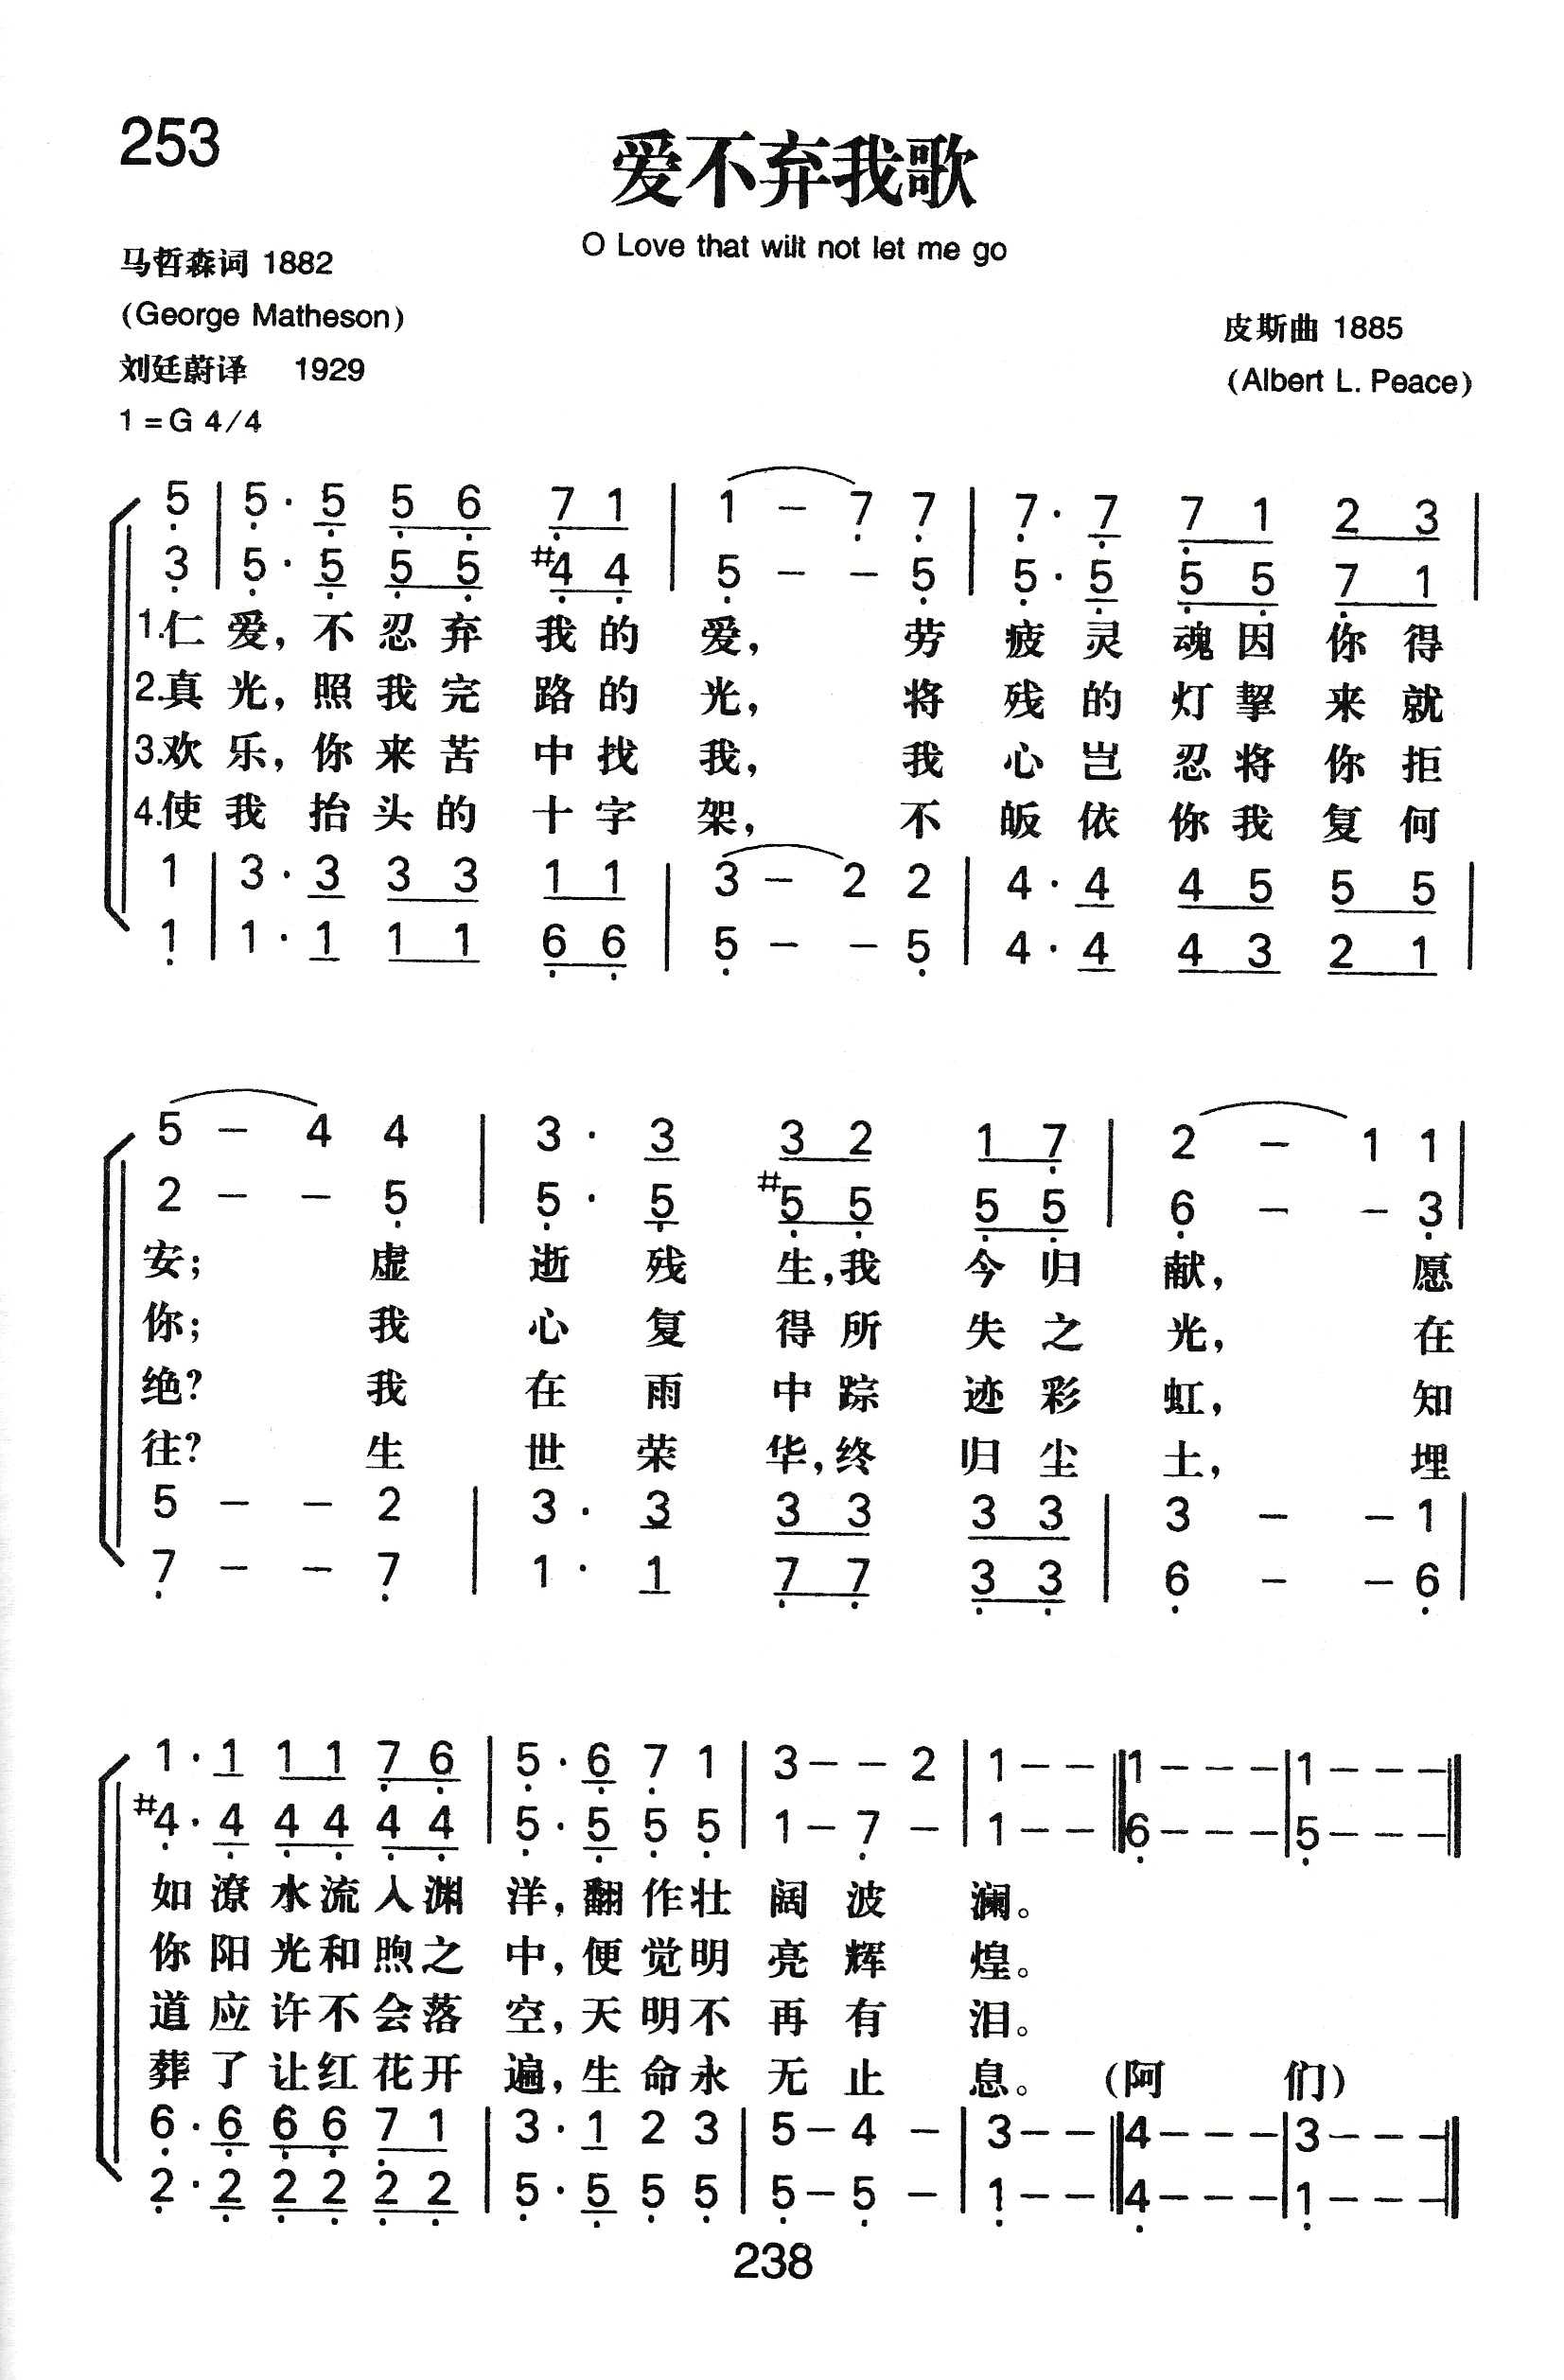 253
爱不弃我歌
O Love that wilt not let me go
马哲森词 1882
(George Matheson)
皮斯曲 1885
刘廷蔚译 1929
(Albert L. Peace)
1=G 4/4
5 | 5· 5 5 6 7 1 | 1 − 7 7 | 7· 7 7 1 2 3 |
3 | 5· 5 5 5 #4 4 | 5 − − 5 | 5· 5 5 5 7 1 |
1.仁爱,不忍弃我的爱, 劳疲灵魂因你得
2.真光,照我完路的光, 将残的灯挈来就
3.欢乐,你来苦中找我, 我心岂忍将你拒
4.使我抬头的十字架, 不皈依你我复何
1 | 3· 3 3 3 1 1 | 3 − 2 2 | 4· 4 4 5 5 5 |
1 | 1· 1 1 1 6 6 | 5 − − 5 | 4· 4 4 3 2 1 |
5 − 4 4 | 3· 3 3 2 1 7 | 2 − 1 1 |
2 − − 5 | 5· 5 #5 5 5 5 | 6 − − 3 |
安; 虚逝残生,我今归献, 愿
你; 我心复得所失之光, 在
绝? 我在雨中踪迹彩虹, 知
往? 生世荣华,终归尘土, 埋
5 − − 2 | 3· 3 3 3 3 3 | 3 − − 1 |
7 − − 7 | 1· 1 7 7 3 3 | 6 − − 6 |
1· 1 1 1 7 6 | 5· 6 7 1 | 3 − − 2 | 1 − − ‖ 1 − − − | 1 − − − ‖
#4· 4 4 4 4 4 | 5· 5 5 5 | 1 − 7 − | 1 − − ‖ 6 − − − | 5 − − − ‖
如潦水流入渊洋,翻作壮阔波澜。
你阳光和煦之中,便觉明亮辉煌。
道应许不会落空,天明不再有泪。
葬了让红花开遍,生命永无止息。 (阿们)
6· 6 6 6 7 1 | 3· 1 2 3 | 5 − 4 − | 3 − − ‖ 4 − − − | 3 − − − ‖
2· 2 2 2 2 2 | 5· 5 5 5 | 5 − 5 − | 1 − − ‖ 4 − − − | 1 − − − ‖
238